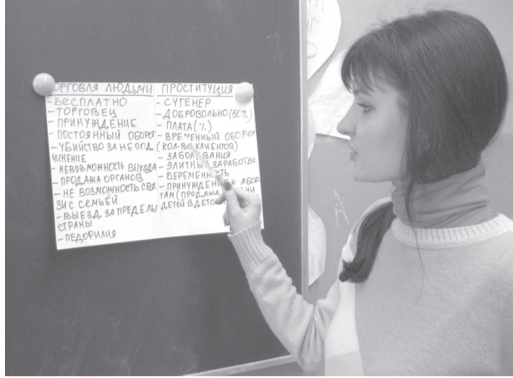 ТОРГОВЛЯ ЛЮДЬМИ
- БЕСПЛАТНО
- ТОРГОВЕЦ
- ПРИНУЖДЕНИЕ
- ПОСТОЯННЫЙ ОБОРОТ
- УБИЙСТВО ЗА НЕПОД
ЧИНЕНИЕ
- НЕВОЗМОЖНОСТЬ ВЫХОДА
- ПРОДАЖА ОРГАНОВ
- НЕ ВОЗМОЖНОСТЬ СВЯ
ЗИ С СЕМЬЕЙ
- ВЫЕЗД ЗА ПРЕДЕЛЫ
СТРАНЫ
- ПЕДОФИЛИЯ
ПРОСТИТУЦИЯ
- СУТЕНЕР
- ДОБРОВОЛЬНО (50%)
- ПЛАТА (%)
- ВРЕМЕННЫЙ ОБОРОТ
(КОЛ-ВО КЛИЕНТОВ)
- ЗАБОЛЕВАНИЯ
- ЭЛИТНЫЙ ЗАРАБОТОК
- БЕРЕМЕННОСТЬ
- ПРИНУЖДЕНИЕ
ДЕТЕЙ В ДЕТС